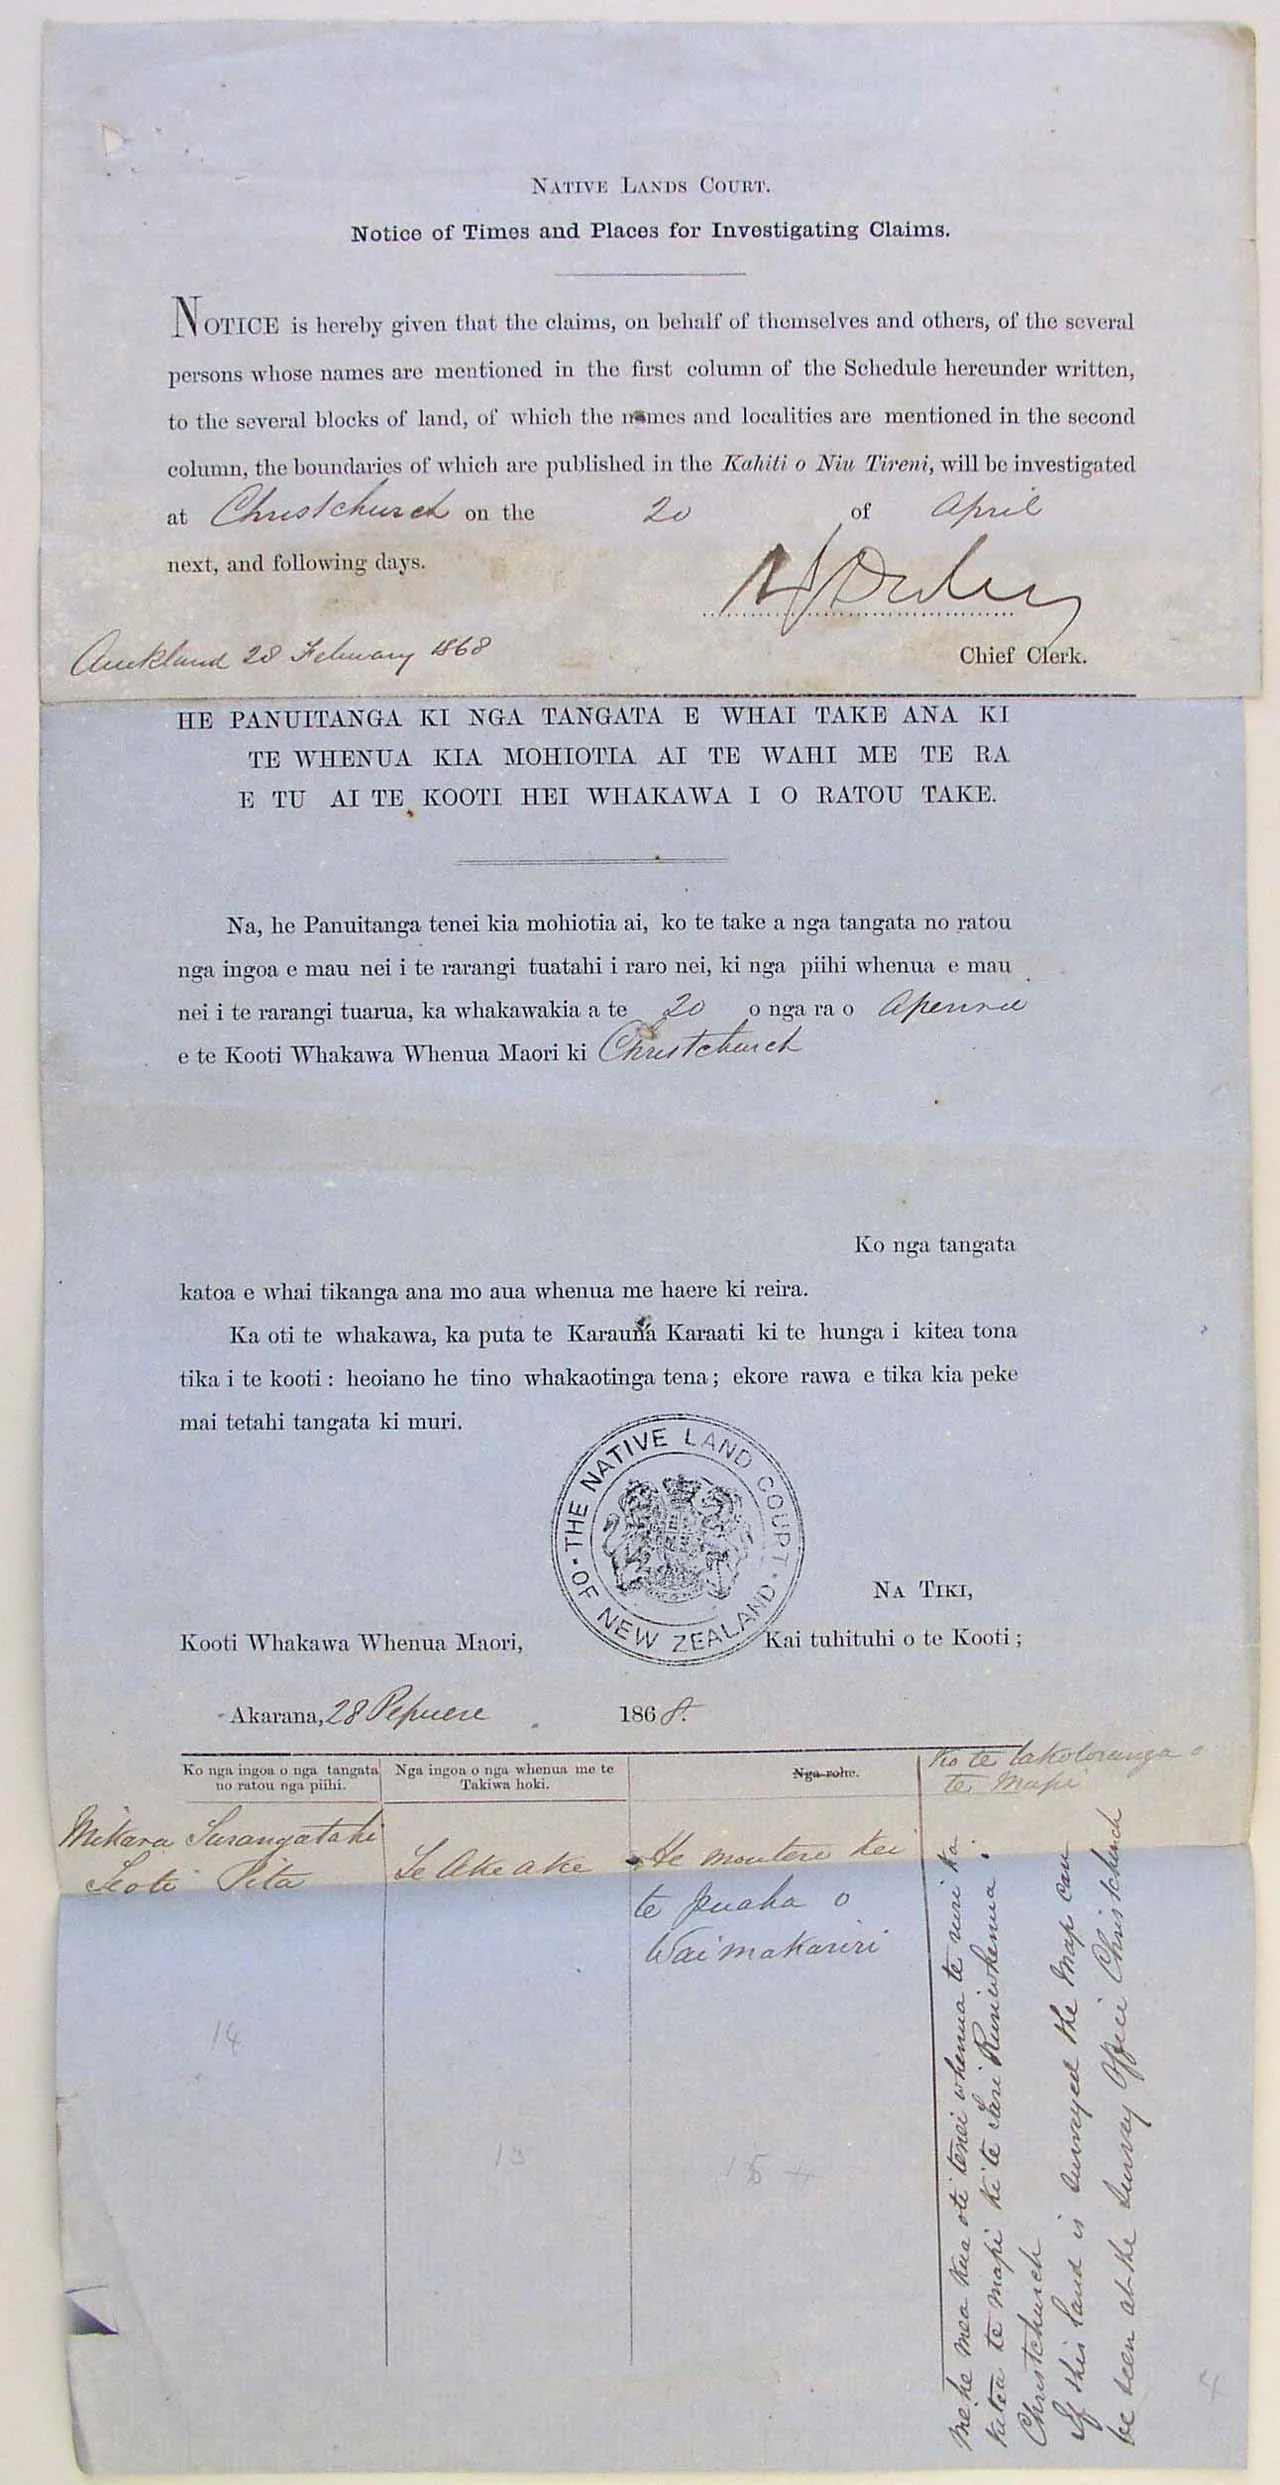 NATIVE LANDS COURT.
Notice of Times and Places for Investigating Claims.
NOTICE is hereby given that the claims, on behalf of themselves and others, of the several
persons whose names are mentioned in the first column of the Schedule hereunder written,
to the several blocks of land, of which the names and localities are mentioned in the second
column, the boundaries of which are published in the Kahiti o Niu Tireni, will be investigated
at Christchurch on the 20 of April
next, and following days.
Auckland 28 February 1868
Chief Clerk.
HE PANUITANGA KI NGA TANGATA E WHAI TAKE ANA KI
TE WHENUA KIA MOHIOTIA AI TE WAHI ME TE RA
E TU AI TE KOOTI HEI WHAKAWA I O RATOU TAKE.
Na, he Panuitanga tenei kia mohiotia ai, ko te take a nga tangata no ratou
nga ingoa e mau nei i te rarangi tuatahi i raro nei, ki nga piihi whenua e mau
nei i te rarangi tuarua, ka whakawakia a te 20 o nga ra o Aperira
e te Kooti Whakawa Whenua Maori ki Christchurch
Ko nga tangata
katoa e whai tikanga ana mo aua whenua me haere ki reira.
Ka oti te whakawa, ka puta te Karauna Karaati ki te hunga i kitea tona
tika i te kooti : heoiano he tino whakaotinga tena ; ekore rawa e tika kia peke
mai tetahi tangata ki muri.
THE NATIVE LAND COURT
OF NEW ZEALAND
NA TIKI,
Kooti Whakawa Whenua Maori,
Kai tuhituhi o te Kooti ;
Akarana, 28 Pepuere 1868.
Ko nga ingoa o nga tangata
no ratou nga piihi.
Nga ingoa o nga whenua me te
Takiwa hoki.
Nga rohe.
Ko te takotoranga o
te Mapi
Mikara Turangatahi
Teoti Pita
Te Akeake
He moutere kei
te puaha o
Waimakariri
Me he mea kua oti tenei whenua te ruri ka
kitea te mapi ki te Tari Ruri whenua i
Christchurch
If this land is surveyed the Map can
be seen at the Survey Office Christchurch
14
13
15
4